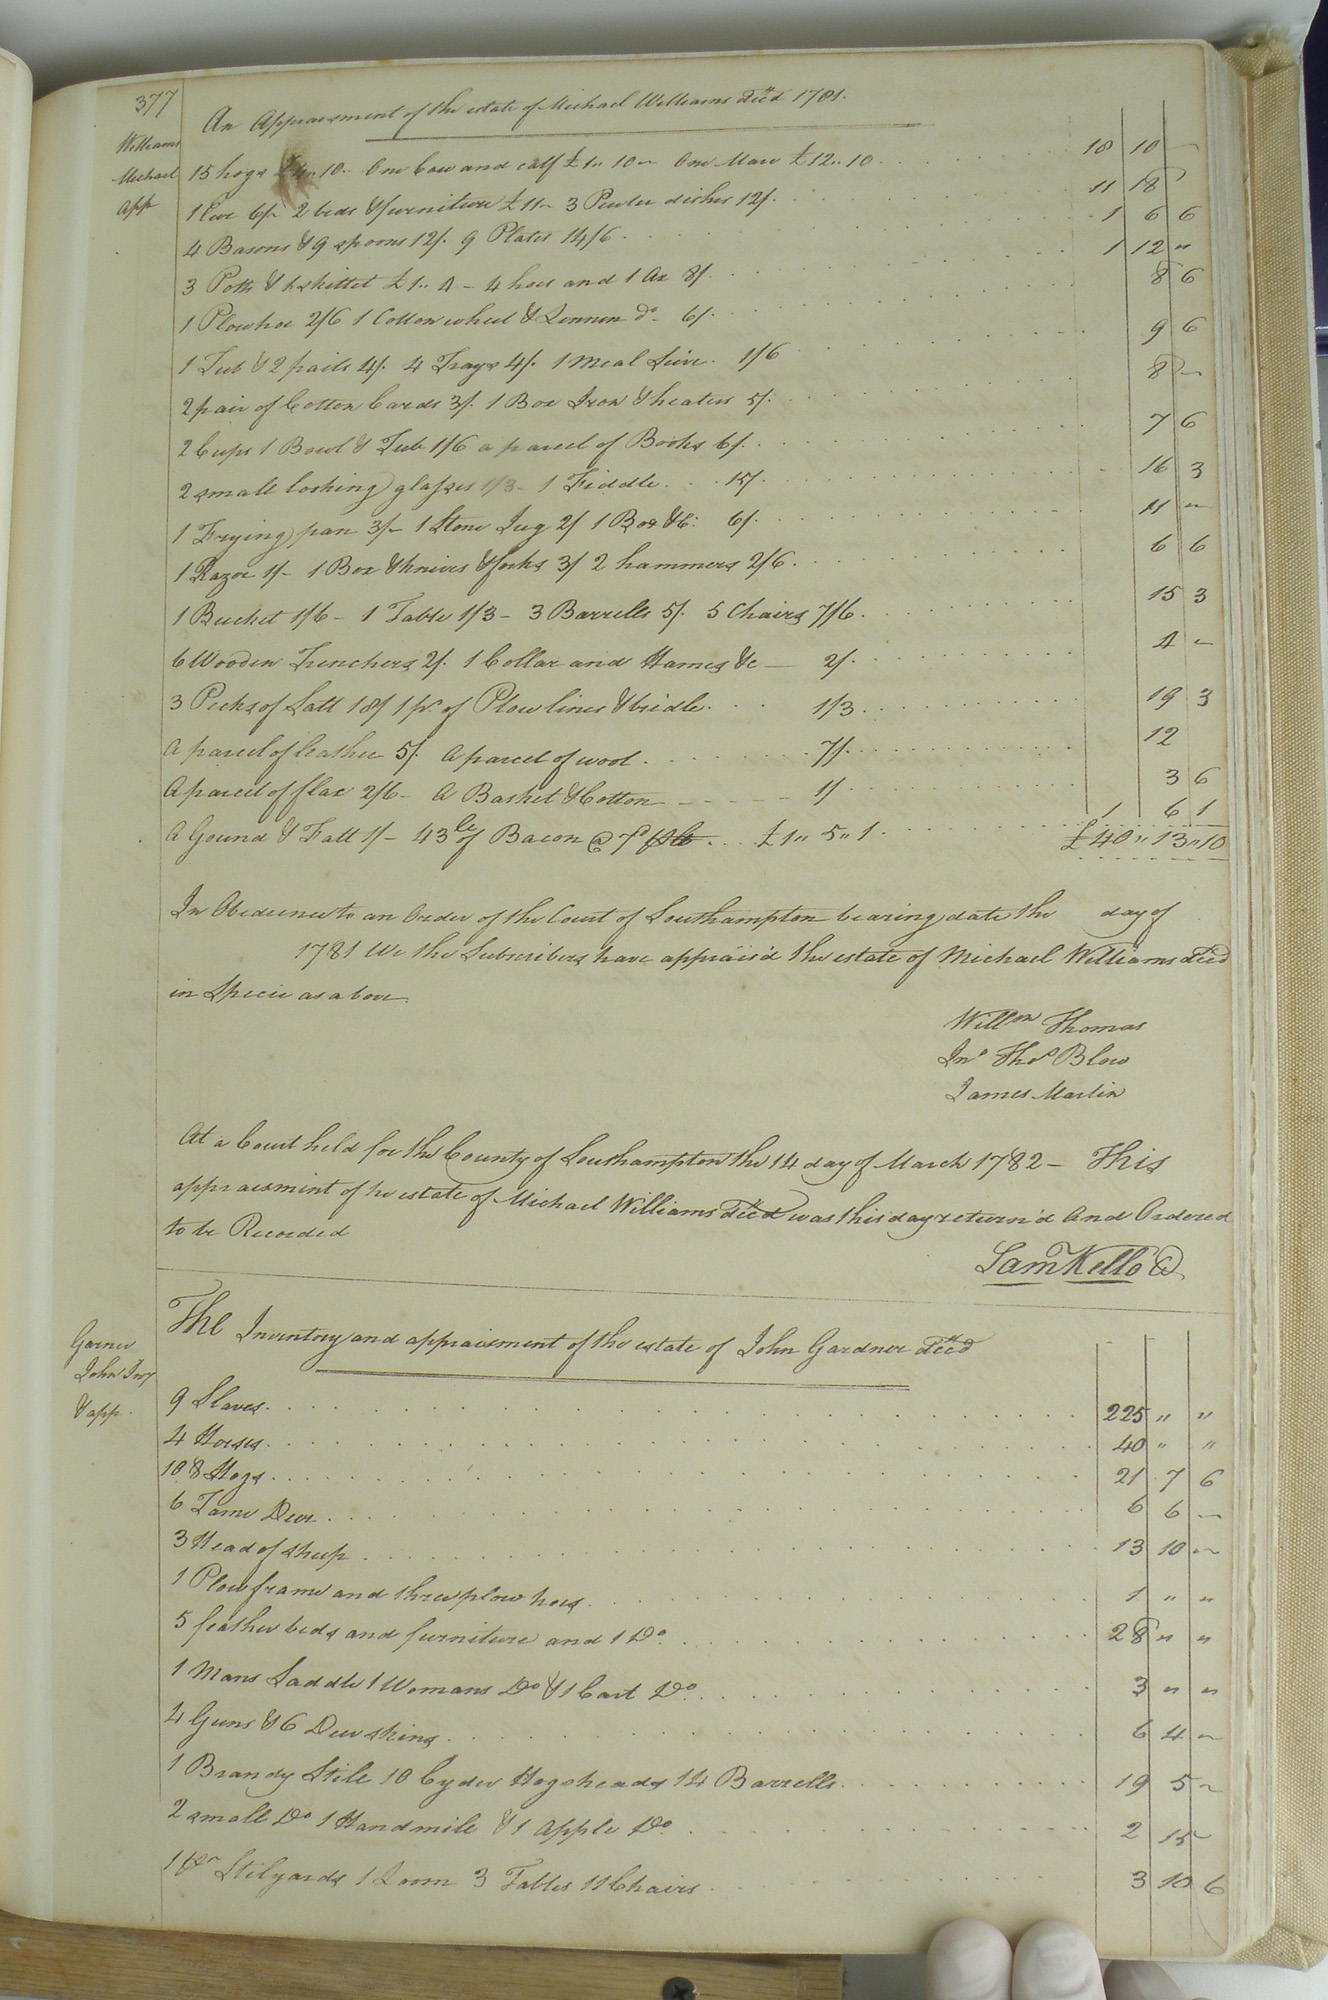 377
An Appraisement of the estate of Michael Williams dec'd 1781.
Williams
Michael
app
15 hogs 10.. One Cow and calf £1.. 10 ~ One Mare £12.. 10 18 10 ~
1 Ewe 6/- 2 beds & furniture £11 ~ 3 Pewter dishes 12/. 11 18
4 Basons & 9 spoons 12/. 9 Plates 14/6 1 6 6
3 Potts & 1 skillet £1.. 4 - 4 hoes and 1 Ax 8/. 1 12 "
1 Plowhoe 2/6 1 Cotton wheel & Linnen do. 6/. 8 6
1 Tub & 2 pails 4/. 4 Trays 4/. 1 meal Sive. 1/6 9 6
2 pair of Cotton Cards 3/. 1 Box Iron & heaters 5/. 8 ~
2 Cups 1 Bowl & Tub 1/6 a parcel of Books 6/. 7 6
2 small looking glasses 1/3 - 1 Fiddle 15/. 16 3
1 Frying pan 3/- 1 Stone Jug 2/ 1 Box &c: 6/. 11 ~
1 Razor 1/- 1 Box & knives & forks 3/ 2 hammers 2/6. 6 6
1 Bucket 1/6 - 1 Table 1/3 - 3 Barrells 5/. 5 Chairs 7/6. 15 3
6 Wooden Trenchers 2/. 1 Collar and Hames &c — 2/. 4 ~
3 Pecks of Salt 18/ 1 pr. of Plow lines & bridle. 1/3 19 3
A parcel of leather 5/. A parcel of wool 7/. 12
A parcel of flax 2/6 - A Basket & Cotton 1/ 3 6
A Gound & Fatt 1/- 43 lb of Bacon @ 7d £1.. 5.. 1 1 6 1
£40 " 13 " 10
In Obedience to an Order of the Court of Southampton bearing date the day of
1781 We the Subscribers have apprais'd the estate of Michael Williams dec'd
in Specie as above.
Willm Thomas
Jno Thos Blow
James Martin
At a Court held for the County of Southampton the 14 day of March 1782 - This
appraisment of he estate of Michael Williams dec'd was this day return'd And Ordered
to be Recorded
Sam Kello Cl
The Inventory and appraisment of the estate of John Gardner dec'd
Garner
John Invy
& app.
9 Slaves. 225 " "
4 Horses. 40 " "
108 Hogs 21 7 6
6 Tame Deer. 6 6 ~
3 Head of sheep 13 10 ~
1 Plow frame and three plow hoes. 1 " "
5 feather beds and furniture and 1 Do. 28 " "
1 Mans Saddle 1 Womans Do & 1 Cart Do. 3 " "
4 Guns & 6 Deer skins 6 4 ~
1 Brandy Stile 10 Cyder Hogsheads 14 Barrells. 19 5 ~
2 small Do 1 Handmile & 1 apple Do. 2 15 ~
1 Pr Stilyards 1 Loom 3 Tables 11 Chairs 3 10 6